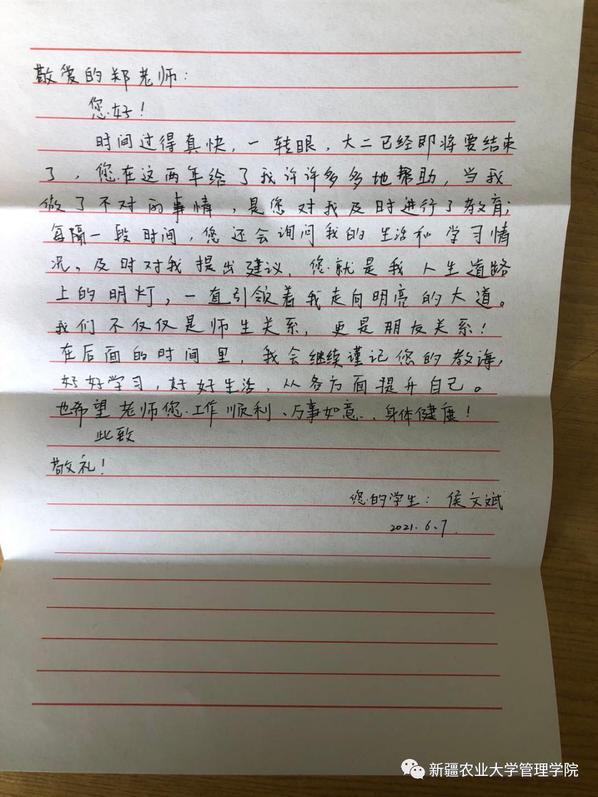 敬爱的郑老师:
您好!
时间过得真快,一转眼,大二已经即将要结束
了,您在这两年给了我许许多多地帮助,当我
做了不对的事情,是您对我及时进行了教育;
每隔一段时间,您还会询问我的生活和学习情
况。及时对我提出建议,您就是我人生道路
上的明灯,一直引领着我走向明亮的大道。
我们不仅仅是师生关系,更是朋友关系!
在后面的时间里,我会继续谨记您的教诲,
好好学习,好好生活,从各方面提升自己。
也希望老师您工作顺利、万事如意、身体健康!
此致
敬礼!
您的学生:侯文斌
2021.6.7
新疆农业大学管理学院